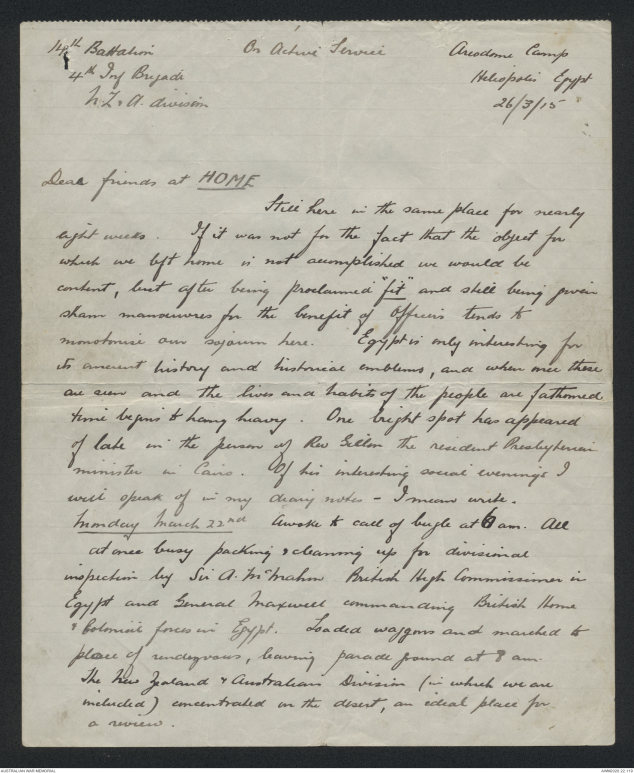 14th Battalion On Active Service Areodome Camp
4th Inf Brigade Heliopolis Egypt
N.Z. & A. division 26/3/15
Dear friends at HOME
Still here in the same place for nearly
eight weeks. If it was not for the fact that the object for
which we left home is not accomplished we would be
content, but after being proclaimed "fit" and still being given
sham manoeuvres for the benefit of Officers tends to
monotonise our sojourn here. Egypt is only interesting for
its ancient history and historical emblems, and when once these
are seen and the lives and habits of the people are fathomed
time begins to hang heavy. One bright spot has appeared
of late in the person of Rev Gillan the resident Presbyterian
minister in Cairo. Of his interesting social evenings I
will speak of in my diary notes - I mean write.
Monday March 22nd Awoke to call of bugle at 6 am. All
at once busy packing & cleaning up for divisional
inspection by Sir A. McMahon British High Commissioner in
Egypt and General Maxwell commanding British Home
& Colonial forces in Egypt. Loaded waggons and marched to
place of rendezvous, leaving parade ground at 8 am.
The New Zealand & Australian Division (in which we are
included) concentrated on the desert, an ideal place for
a review.
AUSTRALIAN WAR MEMORIAL